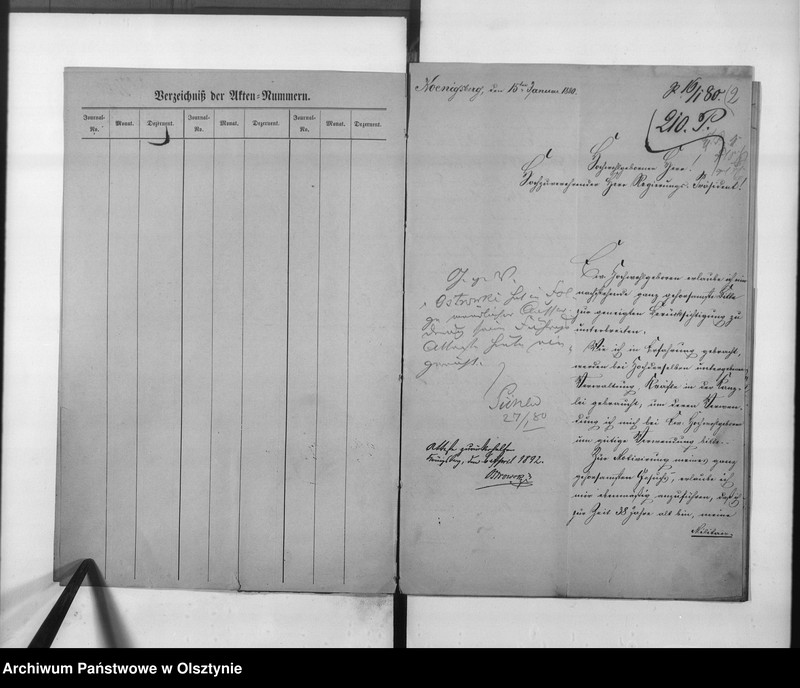 Verzeichniß der Akten-Nummern.
Journal-No. Monat. Dezernent. Journal-No. Monat. Dezernent. Journal-No. Monat. Dezernent.
Koenigsberg, den 15ten Januar 1880.
pr 16/1 80. 2
210. P.
Hochwohlgeborner Herr!
Hochzuverehrender Herr Regierungs-Präsident!
Ew. Hochwohlgeboren erlaube ich mir
nachstehende ganz gehorsamste Bitte
zur geneigten Berücksichtigung zu
unterbreiten.
Wie ich in Erfahrung gebracht,
werden bei Hochderselben untergebenen
Verwaltung, Kräfte in der Kanz-
lei gebraucht, um deren Verwen-
dung ich mich bei Ew. Hochwohlgeboren
um gütige Verwendung bitte.
Zur Motivirung meines ganz
gehorsamsten Gesuchs, erlaube ich
mir ebenmäßig anzuführen, daß ich
zur Zeit 38 Jahre alt bin, meine
Militair-
Ostrowski hat in Fol-
ge mündlicher
Atteste heute ein-
gereicht.
27/1 80
Atteste zurückerhalten
Königsberg, den April 1892.
Archiwum Państwowe w Olsztynie